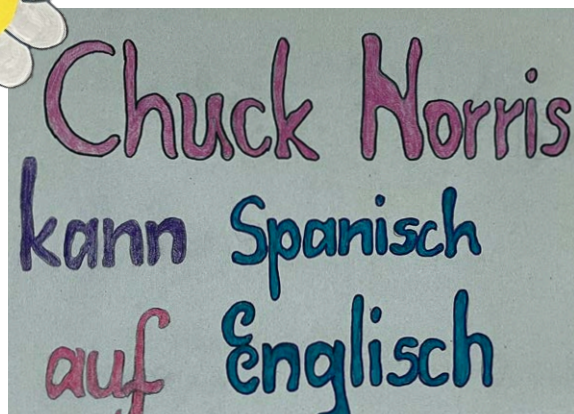 Chuck Norris
kann Spanisch
auf Englisch